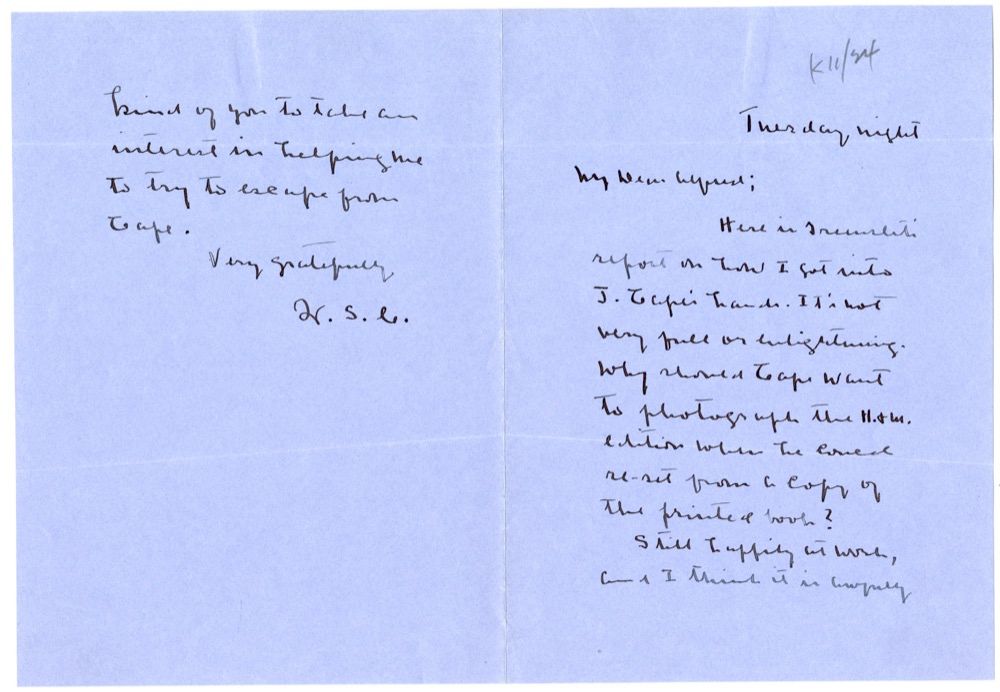 K11/34
Tuesday night
My Dear Alfred;
Here is
report on how I got into
J. Cape's hands. It's not
very full or enlightening.
Why should Cape want
to photograph the H.&M.
edition when he could
re-set from a copy of
the printed book?
Still happily at work,
and I think it is awfully
kind of you to take an
interest in helping me
to try to escape from
Cape.
Very gratefully
W. S. C.